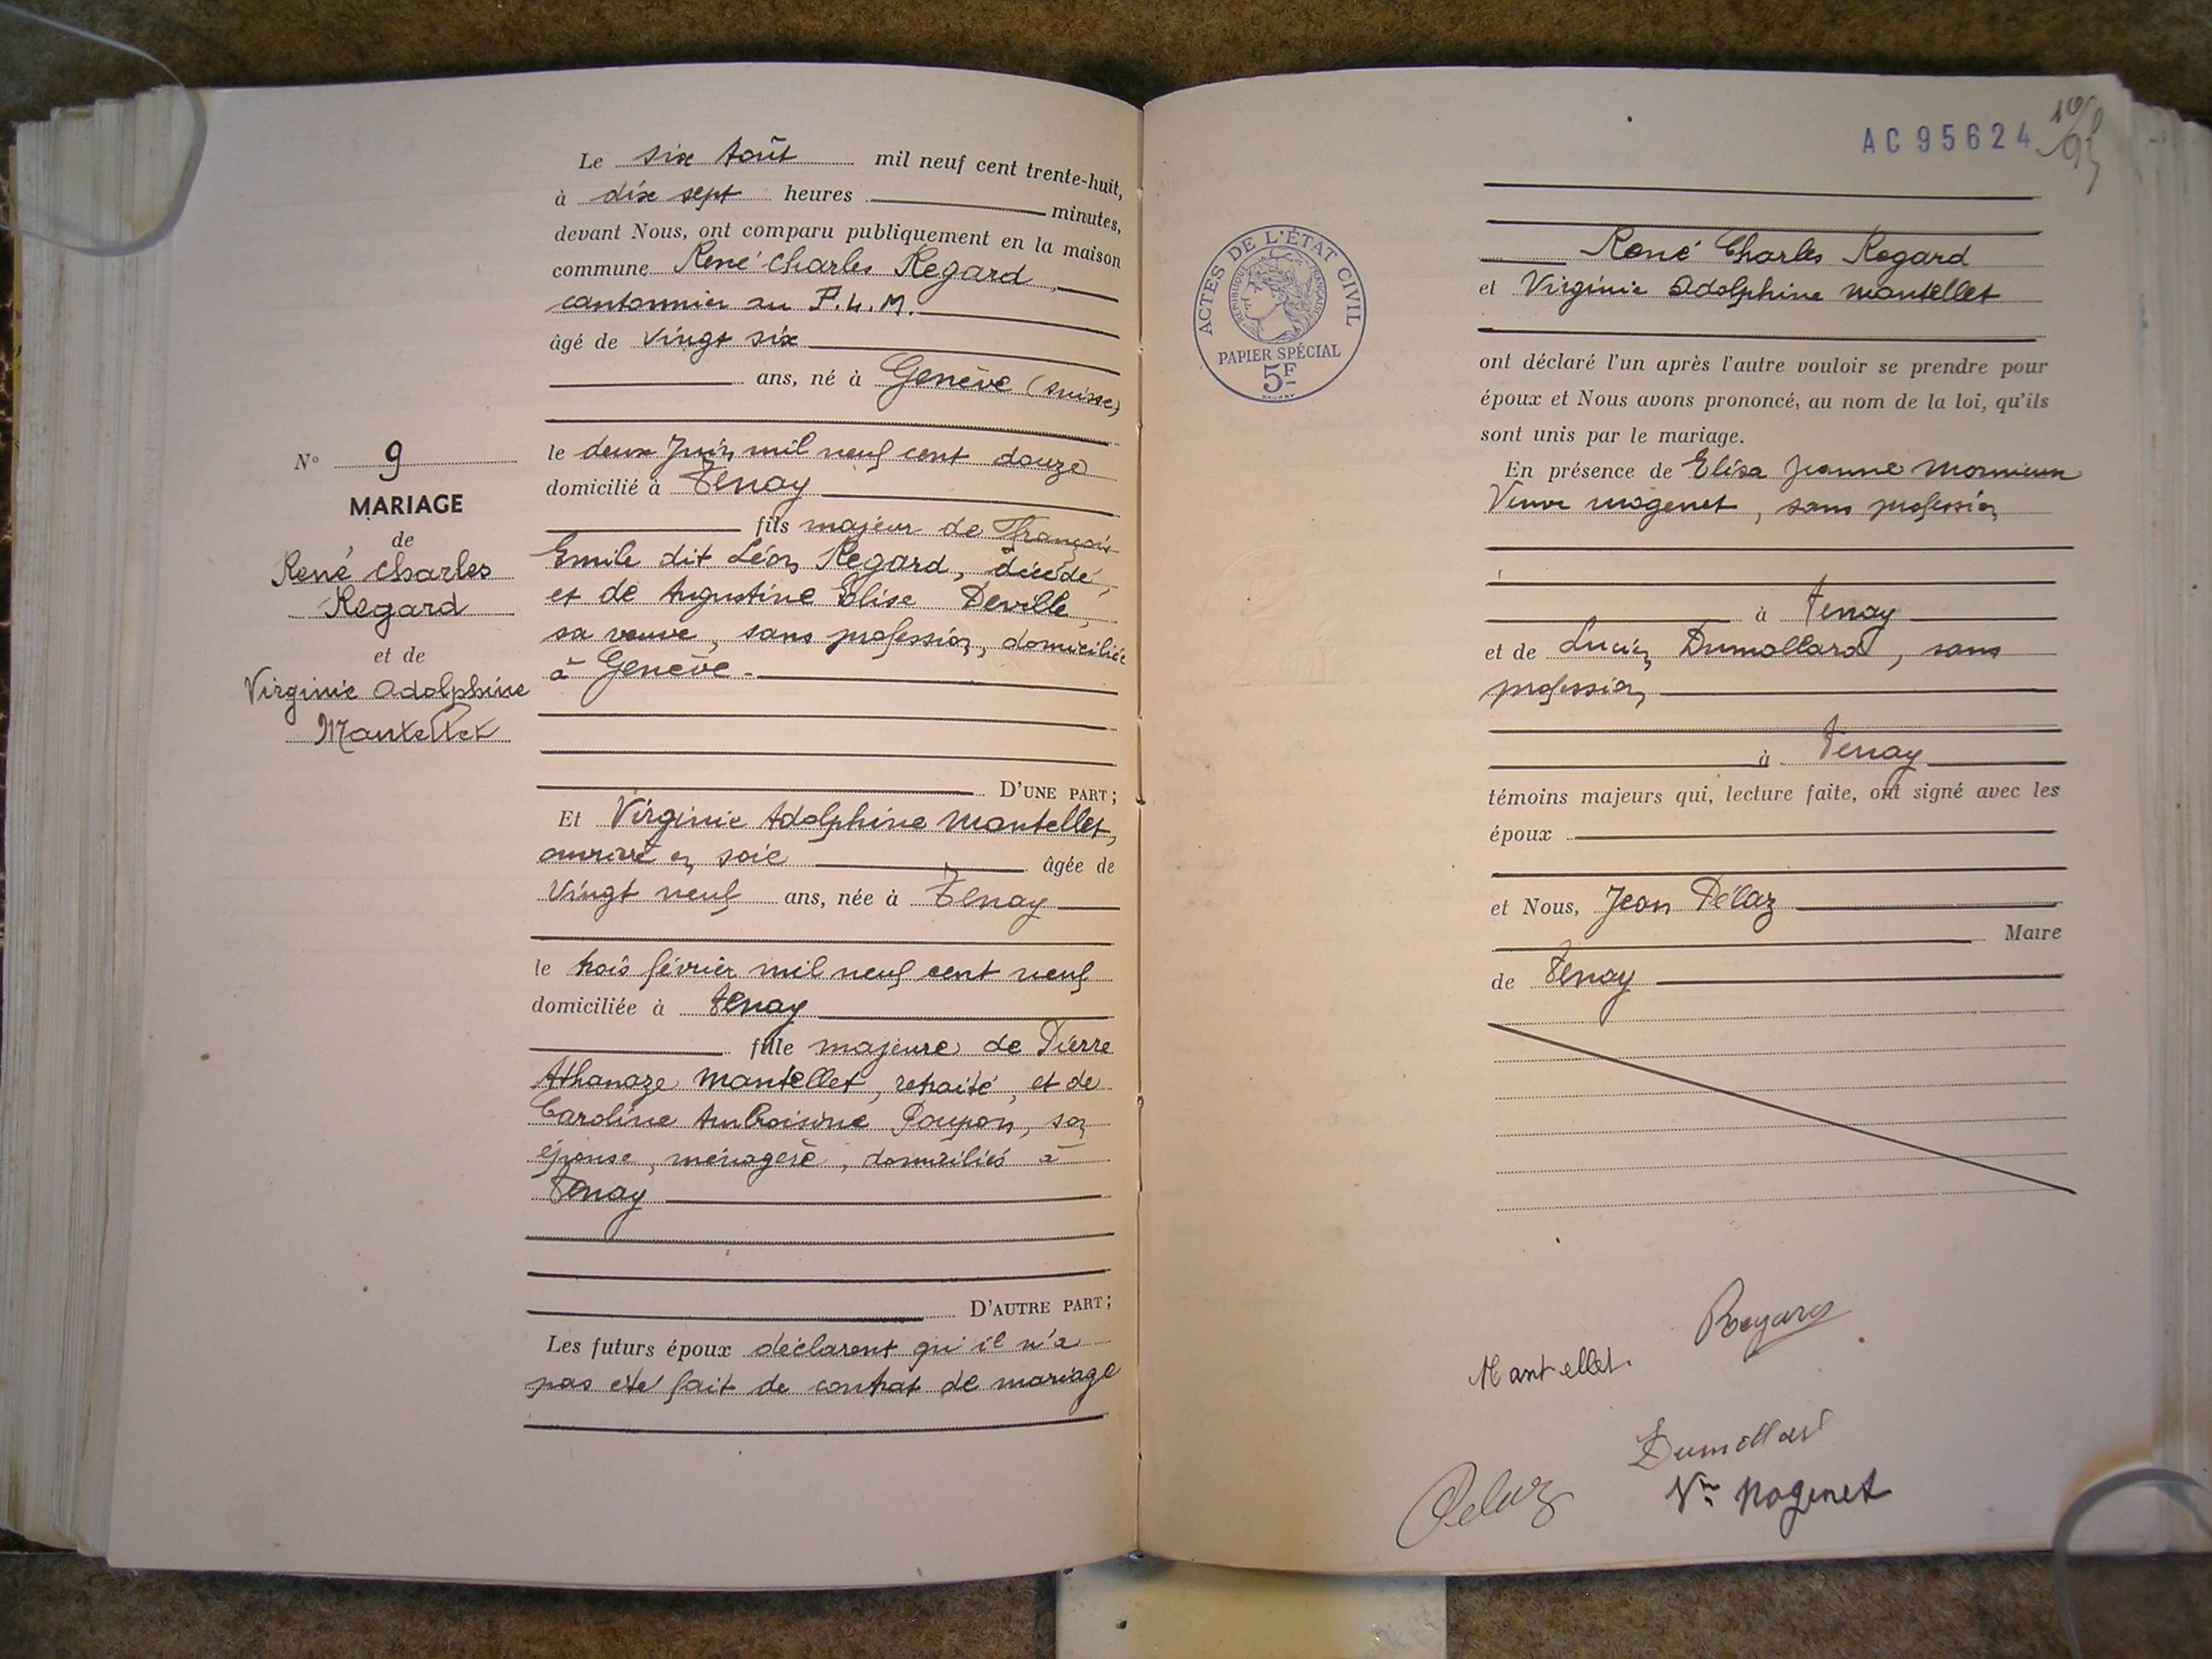 N° 9
MARIAGE
de
René Charles
Regard
et de
Virginie Adolphine
Mantellet
Le six Août mil neuf cent trente-huit,
à dix sept heures minutes,
devant Nous, ont comparu publiquement en la maison
commune René Charles Regard,
cantonnier au P.L.M.
âgé de vingt six
ans, né à Genève (Suisse)
le deux Juin mil neuf cent douze
domicilié à Tenay
fils majeur de François
Emile dit Léon Regard, décédé,
et de Augustine Elise Deville,
sa veuve, sans profession, domiciliée
à Genève.
D'UNE PART;
Et Virginie Adolphine Mantellet,
ouvrière en soie âgée de
Vingt neuf ans, née à Tenay
le trois février mil neuf cent neuf
domiciliée à Tenay
fille majeure de Pierre
Athanaze Mantellet, retraité, et de
Caroline Ambroisine Poupon, son
épouse, ménagère, domiciliés à
Tenay
D'AUTRE PART;
Les futurs époux déclarent qu'il n'a
pas été fait de contrat de mariage
AC 95624
ACTES DE L'ÉTAT CIVIL
RÉPUBLIQUE FRANÇAISE
PAPIER SPÉCIAL
5F
René Charles Regard
et Virginie Adolphine Mantellet
ont déclaré l'un après l'autre vouloir se prendre pour
époux et Nous avons prononcé, au nom de la loi, qu'ils
sont unis par le mariage.
En présence de Elisa Jeanne
Veuve Mogenet, sans profession
à Tenay
et de Lucien Dumollard, sans
profession
à Tenay
témoins majeurs qui, lecture faite, ont signé avec les
époux
et Nous, Jean Pélaz
Maire
de Tenay
Regard
Mantellet
Dumollard
Vve Mogenet
Pelaz